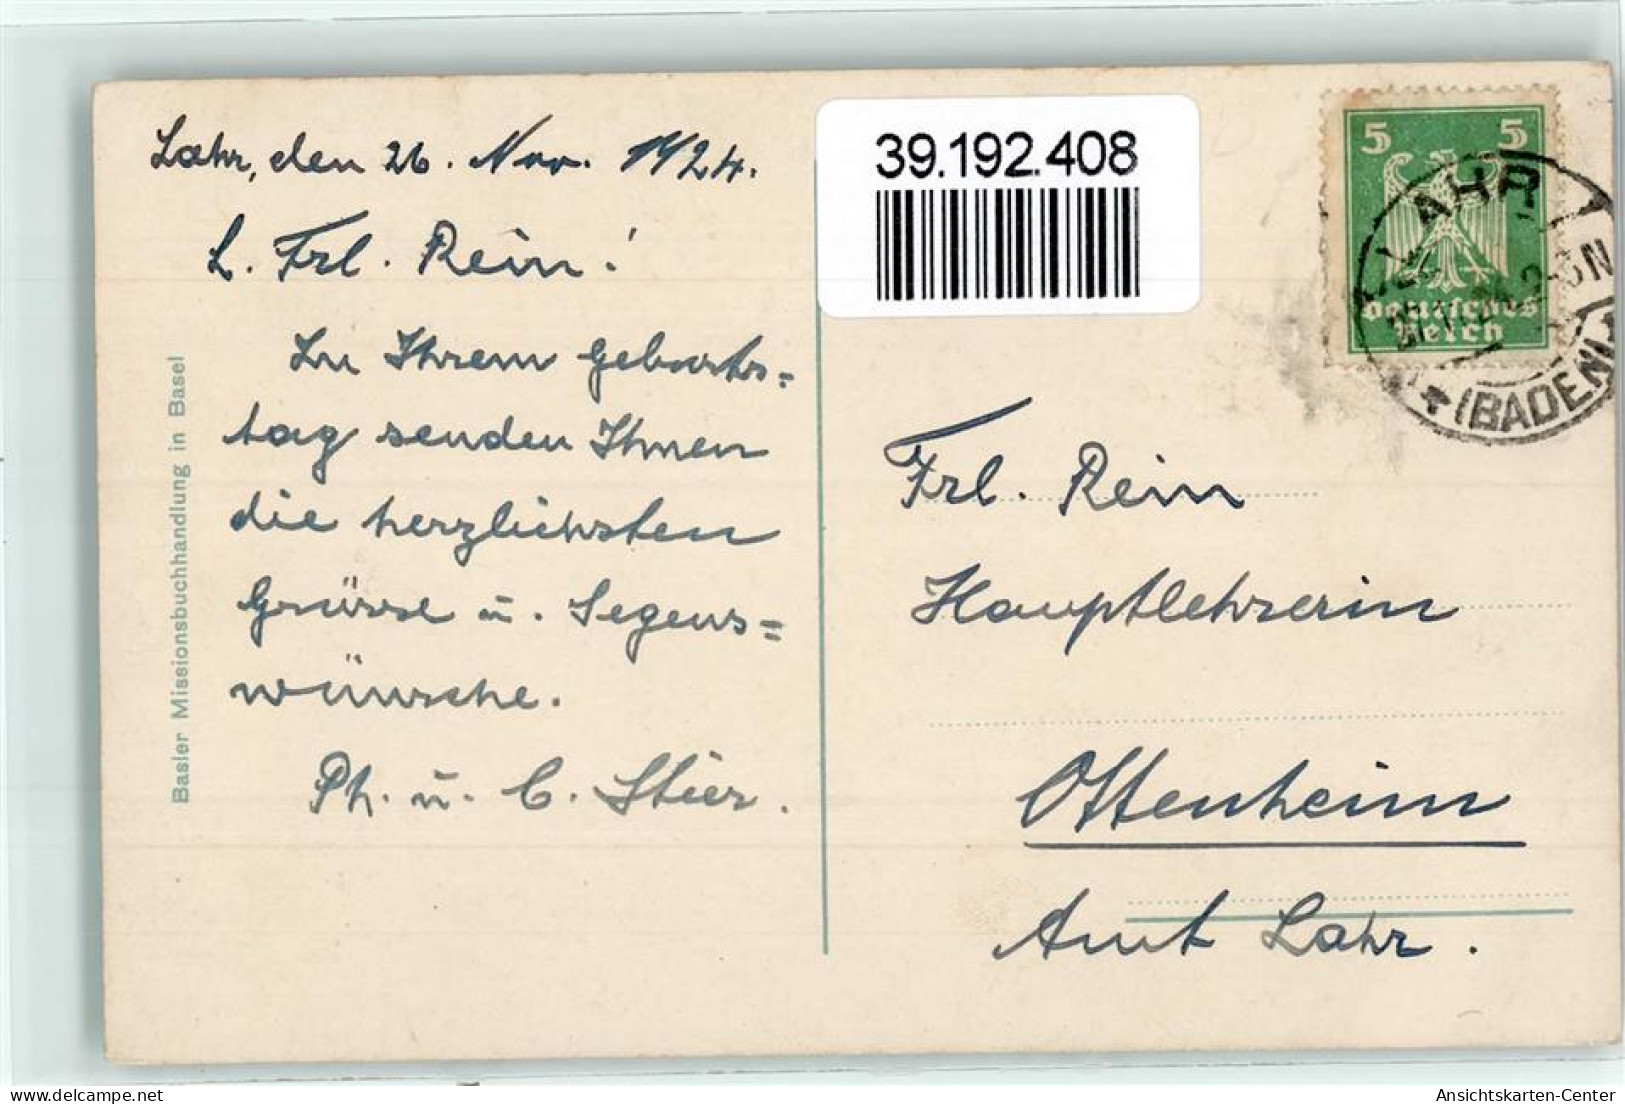 Lahr, den 26. Nov. 1924.
L. Frl. Rein!
Zu Ihrem Geburts=
tag senden Ihnen
die herzlichsten
Grüsse u. Segens=
wünsche.
Ph. u. C. Stier.
Basler Missionsbuchhandlung in Basel
39.192.408
5 5
Deutsches
Reich
LAHR
(BADEN)
Frl. Rein
Hauptlehrerin
Ottenheim
Amt Lahr.
Ansichtskarten-Center